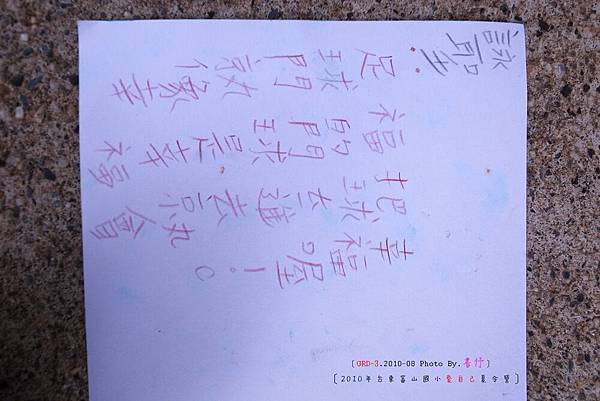 詠聖：
足球門就像幸
福的門球是幸福
把球去進去就會
幸福喔！。
[GRD-3.2010-08 Photo By.書伃]
[2010年台東富山國小愛自己夏令營]